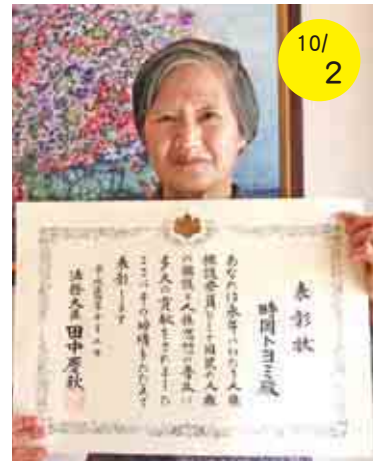 10/
2
表彰状
時岡トヨミ殿
あなたは永年にわたり人権
擁護委員として国民の人権
の擁護と人権思想の普及に
多大の貢献をされました
ここにその功績をたたえて
表彰します
法務大臣 田中慶秋